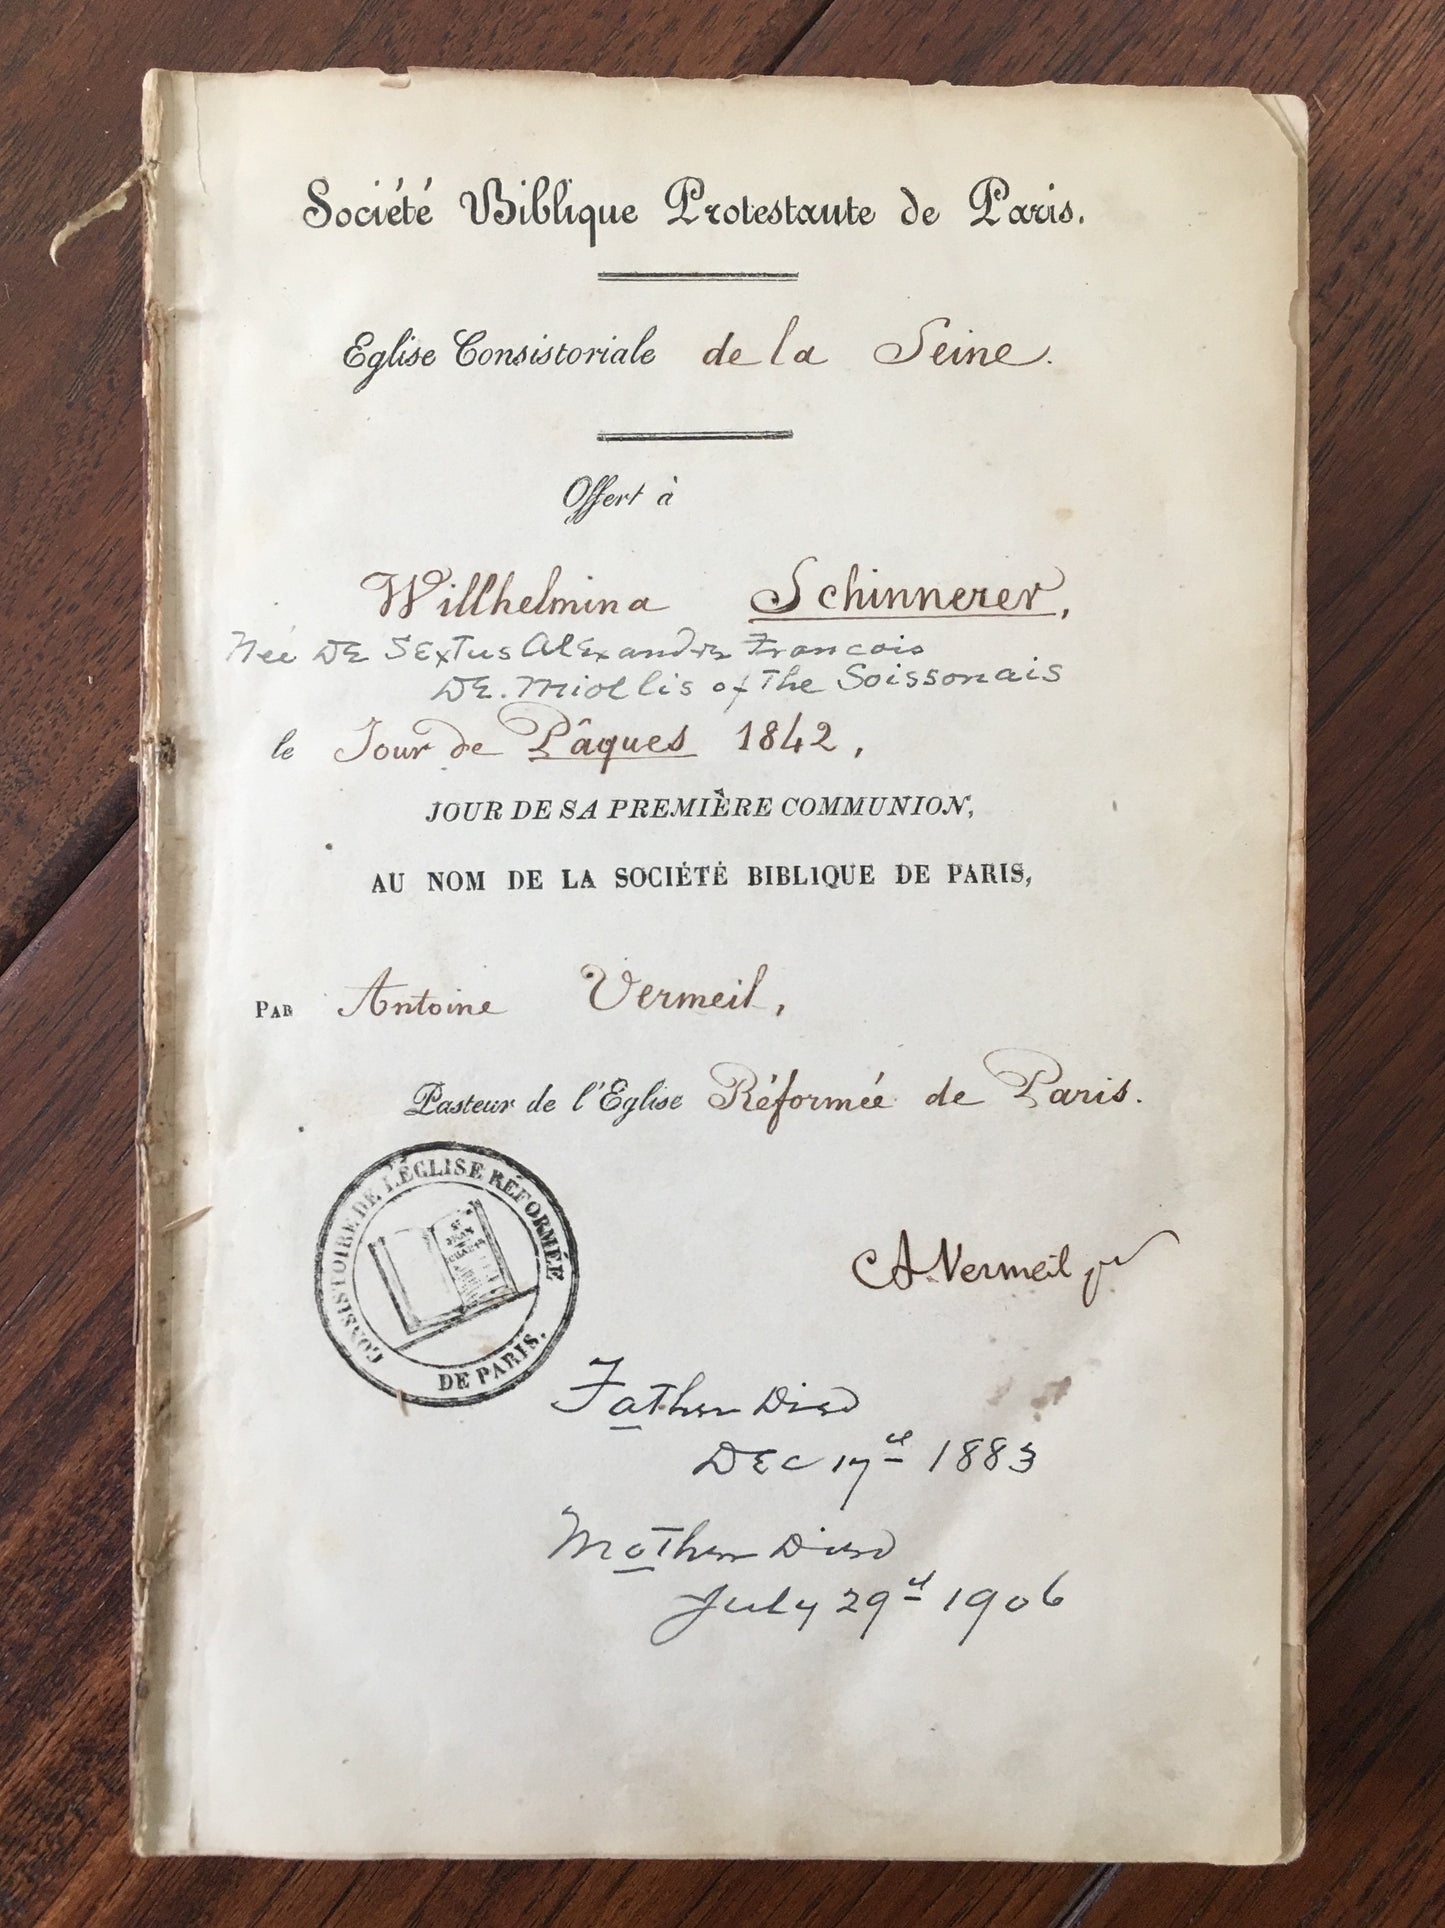 Société Biblique Protestante de Paris.
Eglise Consistoriale de la Seine.
Offert à
Willhelmina Schinnerer,
Née DE Sextus Alexandre Francois
DE. Miollis of The Soissonais
le Jour de Pâques 1842,
JOUR DE SA PREMIÈRE COMMUNION,
AU NOM DE LA SOCIÉTÉ BIBLIQUE DE PARIS,
PAR Antoine Vermeil,
Pasteur de l'Église Réformée de Paris.
CONSISTOIRE DE L'ÉGLISE RÉFORMÉE
DE PARIS.
A Vermeil pr
Father Died
DEC 17d 1883
Mother Died
July 29d 1906